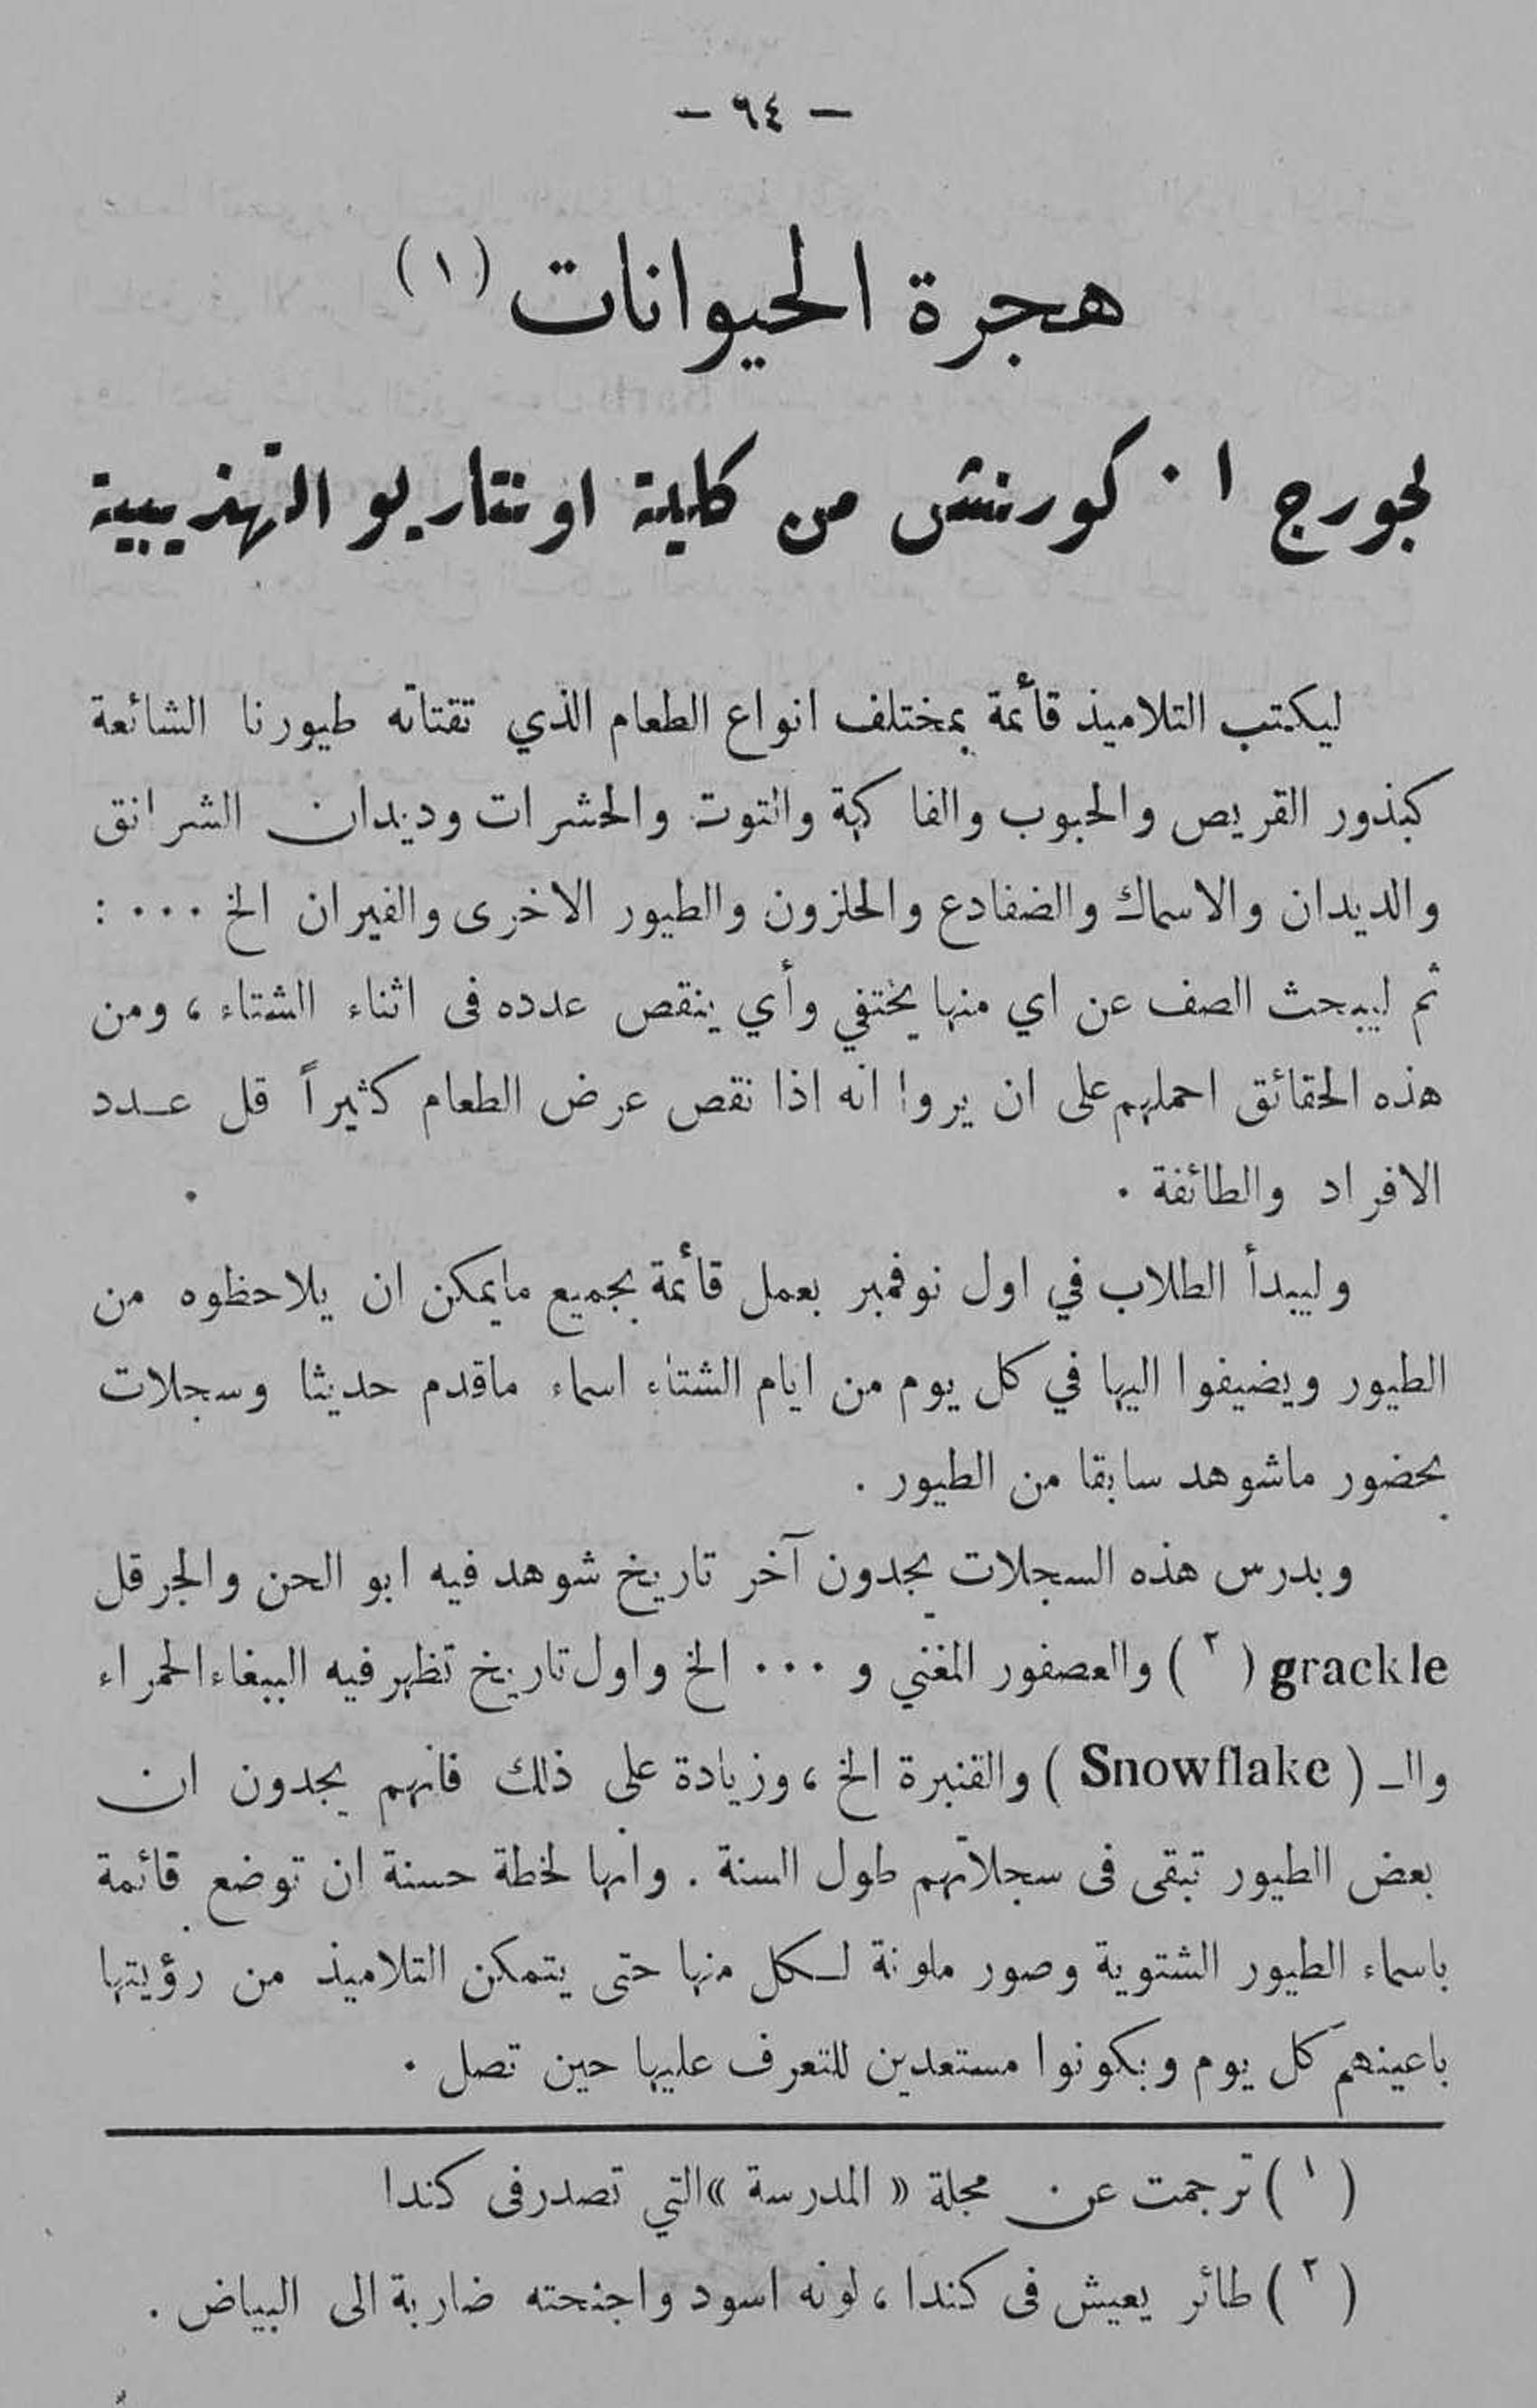 — ٦٤ —
هجرة الحيوانات (١)
لجورج ا . كورنش من كلية اونتاريو التهذيبية
ليكتب التلاميذ قأئمة بمختلف انواع الطعام الذي تقتاته طيورنا الشائعة
كبذور القريص والحبوب والفاكهة والتوت والحشرات وديدان الشرانق
والديدان والاسماك والضفادع والحلزون والطيور الاخرى والفيران الخ ... :
ثم ليبحث الصف عن اي منها يختفي وأي ينقص عدده فى اثناء الشتاء ، ومن
هذه الحقائق احملهم على ان يروا انه اذا نقص عرض الطعام كثيراً قل عدد
الافراد والطائفة .
وليبدأ الطلاب في اول نوفمبر بعمل قأئمة بجميع مايمكن ان يلاحظوه من
الطيور ويضيفوا اليها في كل يوم من ايام الشتاء اسماء ماقدم حديثا وسجلات
بحضور ماشوهد سابقا من الطيور .
وبدرس هذه السجلات يجدون آخر تاريخ شوهد فيه ابو الحن والجرقل
grackle (٢) والعصفور المغني و ... الخ واول تاريخ تظهر فيه الببغاء الحمراء
والـ ( Snowflake ) والقنبرة الخ ، وزيادة على ذلك فانهم يجدون ان
بعض الطيور تبقى فى سجلاتهم طول السنة . وانها لخطة حسنة ان توضع قائمة
باسماء الطيور الشتوية وصور ملونة لـكل منها حتى يتمكن التلاميذ من رؤيتها
باعينهم كل يوم وبكونوا مستعدين للتعرف عليها حين تصل .
(١) ترجمت عن مجلة « المدرسة » التي تصدر فى كندا
(٢) طائر يعيش فى كندا ، لونه اسود واجنحته ضاربة الى البياض .